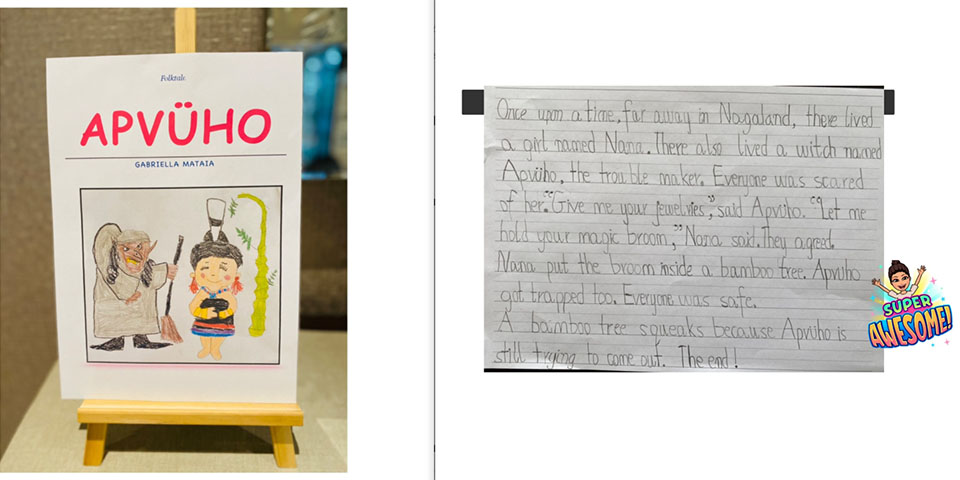 Folktale
APVÜHO
GABRIELLA MATAIA
Once upon a time, far away in Nagaland, there lived
a girl named Nana. There also lived a witch named
Apvüho, the trouble maker. Everyone was scared
of her. "Give me your jewelries", said Apvüho. "Let me
hold your magic broom," Nana said. They agreed.
Nana put the broom inside a bamboo tree. Apvuho
got trapped too. Everyone was safe.
A bamboo tree squeaks because Apvüho is
still trying to come out. The end!
SUPER
AWESOME!